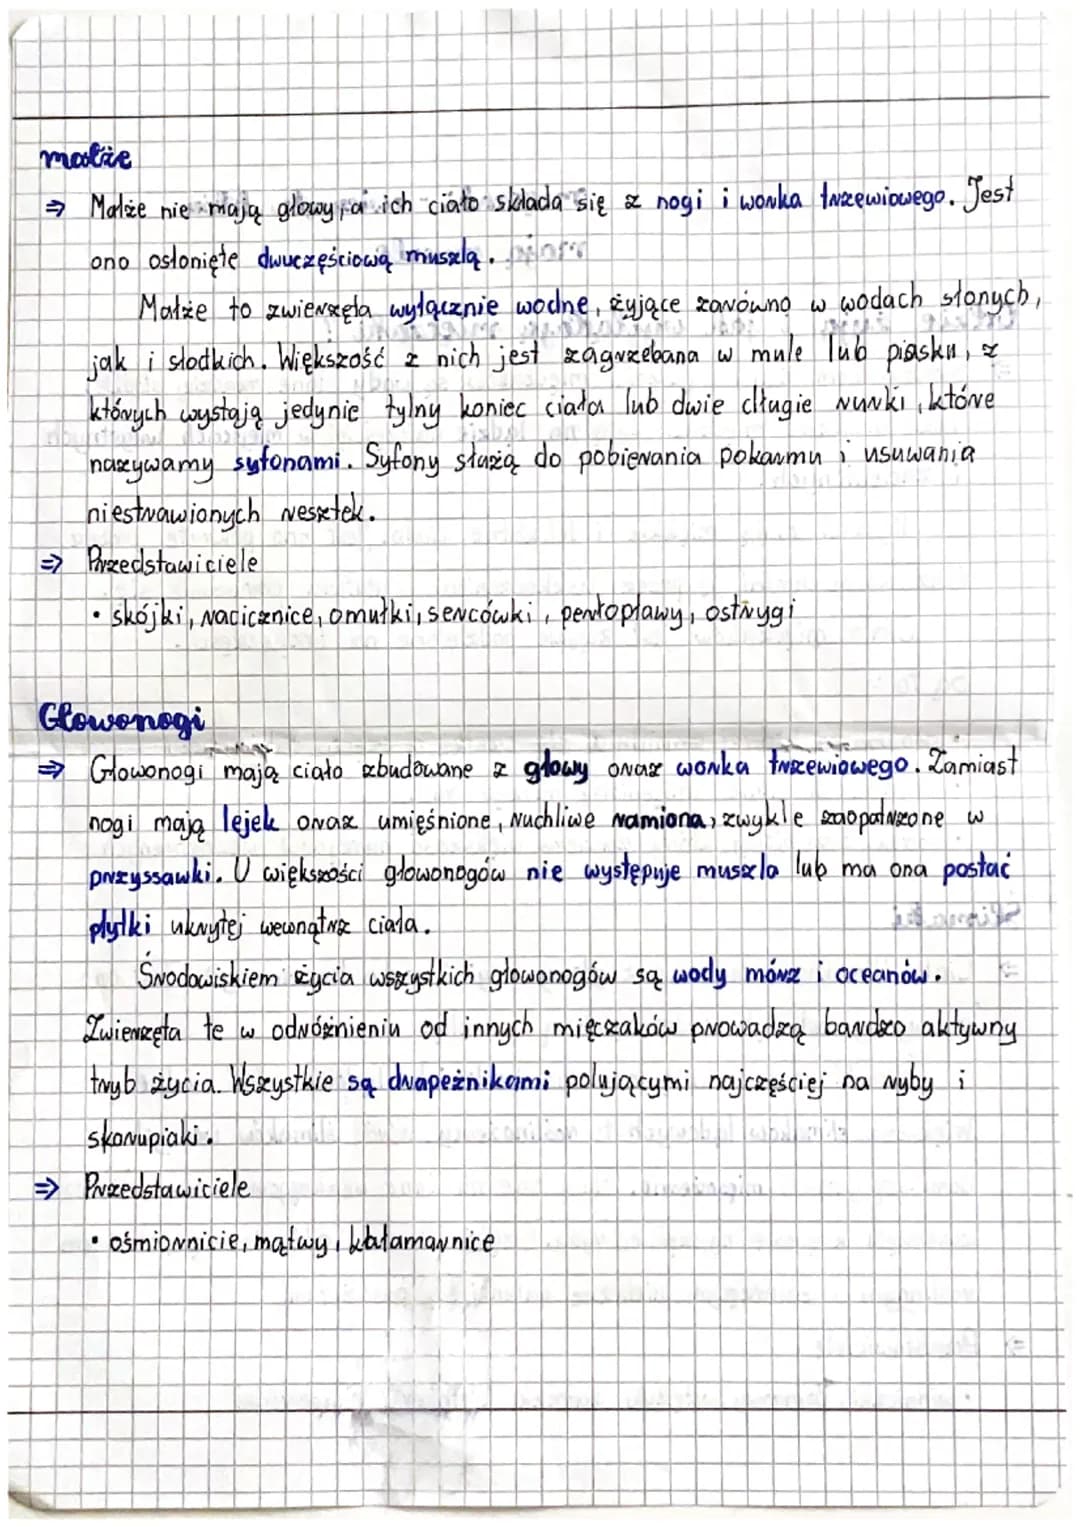 małże
⇒ Małże nie mają głowy, a ich ciało składa się z nogi i worka trzewiowego. Jest
ono osłonięte dwuczęściową muszlą.
Małże to zwierzęta wyłącznie wodne, żyjące zarówno w wodach słonych,
jak i słodkich. Większość z nich jest zagrzebana w mule lub piasku, z
których wystają jedynie tylny koniec ciała lub dwie długie rurki, które
nazywamy syfonami. Syfony służą do pobierania pokarmu i usuwania
niestrawionych resztek.
⇒ Przedstawiciele
• skójki, racicznice, omułki, sercówki, perłopławy, ostrygi
Głowonogi
⇒ Głowonogi mają ciało zbudowane z głowy oraz worka trzewiowego. Zamiast
nogi mają lejek oraz umięśnione, ruchliwe ramiona, zwykle zaopatrzone w
przyssawki. U większości głowonogów nie występuje muszla lub ma ona postać
płytki ukrytej wewnątrz ciała.
Środowiskiem życia wszystkich głowonogów są wody mórz i oceanów.
Zwierzęta te w odróżnieniu od innych mięczaków prowadzą bardzo aktywny
tryb życia. Wszystkie są drapeżnikami polującymi najczęściej na ryby i
skorupiaki.
⇒ Przedstawiciele
• ośmiornicie, mątwy, kałamarnice